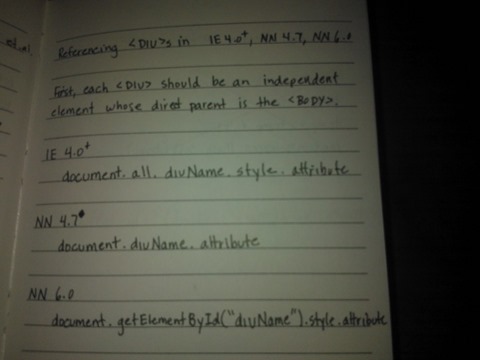 Referencing <DIV>s in IE 4.0+, NN 4.7, NN 6.0
First, each <DIV> should be an independent
element whose direct parent is the <BODY>.
IE 4.0+
document.all.divName.style.attribute
NN 4.7
document.divName.attribute
NN 6.0
document.getElementById("divName").style.attribute